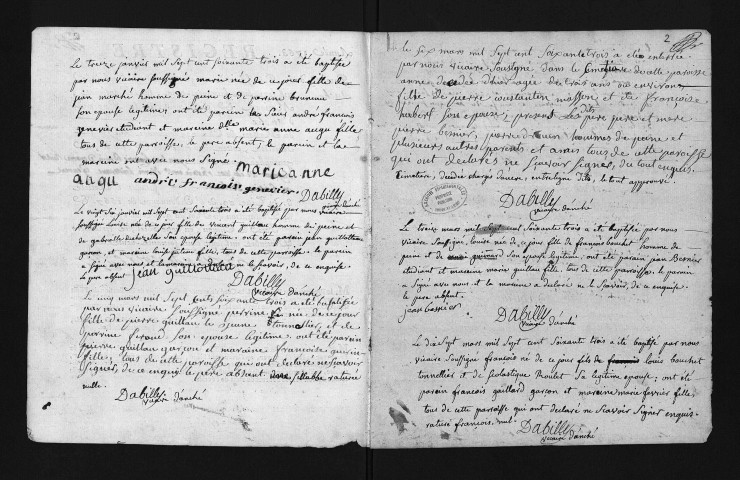 Le treize janvier mil Sept cent soixante trois a été baptisée
par nous vicaire soussigné marie née de ce jour fille de
jean marché homme de peine et de perrine bruneau
son epouse legitime, ont été parein le Sieur andre francois
genevier etudiant et mareine dlle marie anne augu fille
tous de cette paroisse, le pere absent, le parein et la
mareine ont avec nous Signé. marie anne
augu andré francois genevier Dabilly
vicaire d'anché
Le vingt six janvier mil Sept cent Soixante trois a été baptisée par nous vicaire
soussigné Louise née de ce jour fille de vincent guillon homme de peine et
de gabrielle Son epouse legitime ont été parein jean
garcon, et mareine Louise fille, tous de cette paroisse. le parein
a Signé avec nous et la mareine a declaré ne le Scavoir, de ce enquise
le pere absent jean
Dabilly
vicaire d'anché
Le cinq mars mil Sept cents Soixante trois a été baptisée
par nous vicaire Soussigné perrine née de ce jour
fille de pierre guillau le jeune tonnellier, et de
perrine Son epouse legitime: ont été parein
pierre guillau garçon et mareine francoise
fille; tous de cette paroisse qui ont declaré ne scavoir
Signer, de ce enquis. le pere absent. rature
nulle.
Dabilly
vicaire d'anché
2
Le Six mars mil Sept cent Soixante trois a été enterrée
par nous vicaire Soussigné dans le Cimetiere de cette paroisse
anne decedée d'hier agée de trois ans ou environ,
fille de pierre coustantin masson et de francoise
hubert Son epouse, present Le pere et mere
pierre bernier, pierre hommes de peine et
plusieurs autres parents et amis tous de cette paroisse
qui ont declarés ne Scavoir Signer, du tout enquis.
Cimetiere, le tout approuvé.
Dabilly
vicaire d'anché
Le treize mars mil Sept cent Soixante trois a été baptisée par nous
vicaire Soussigné, louise née de ce jour fille de francois bouchet homme de
peine et de guimard Son epouse legitime; ont été parein jean
etudiant et mareine marie guillau fille, tous de cette paroisse. le parein
a Signé avec nous et la mareine a declaré ne le Scavoir, de ce enquise
le pere absent.
jean
Dabilly
vicaire d'anché
Le dix Sept mars mil Sept cent Soixante trois a été baptisé par nous
vicaire Soussigné francois né de ce jour fils de louis bouchet
tonnellier et de Scolastique Roulet Sa legitime epouse; ont été
parein francois gaillard garcon et mareine marie fevrier fille,
tous de cette paroisse qui ont declaré ne Scavoir Signer enquis.
rature francois, nul.
Dabilly
vicaire d'anché